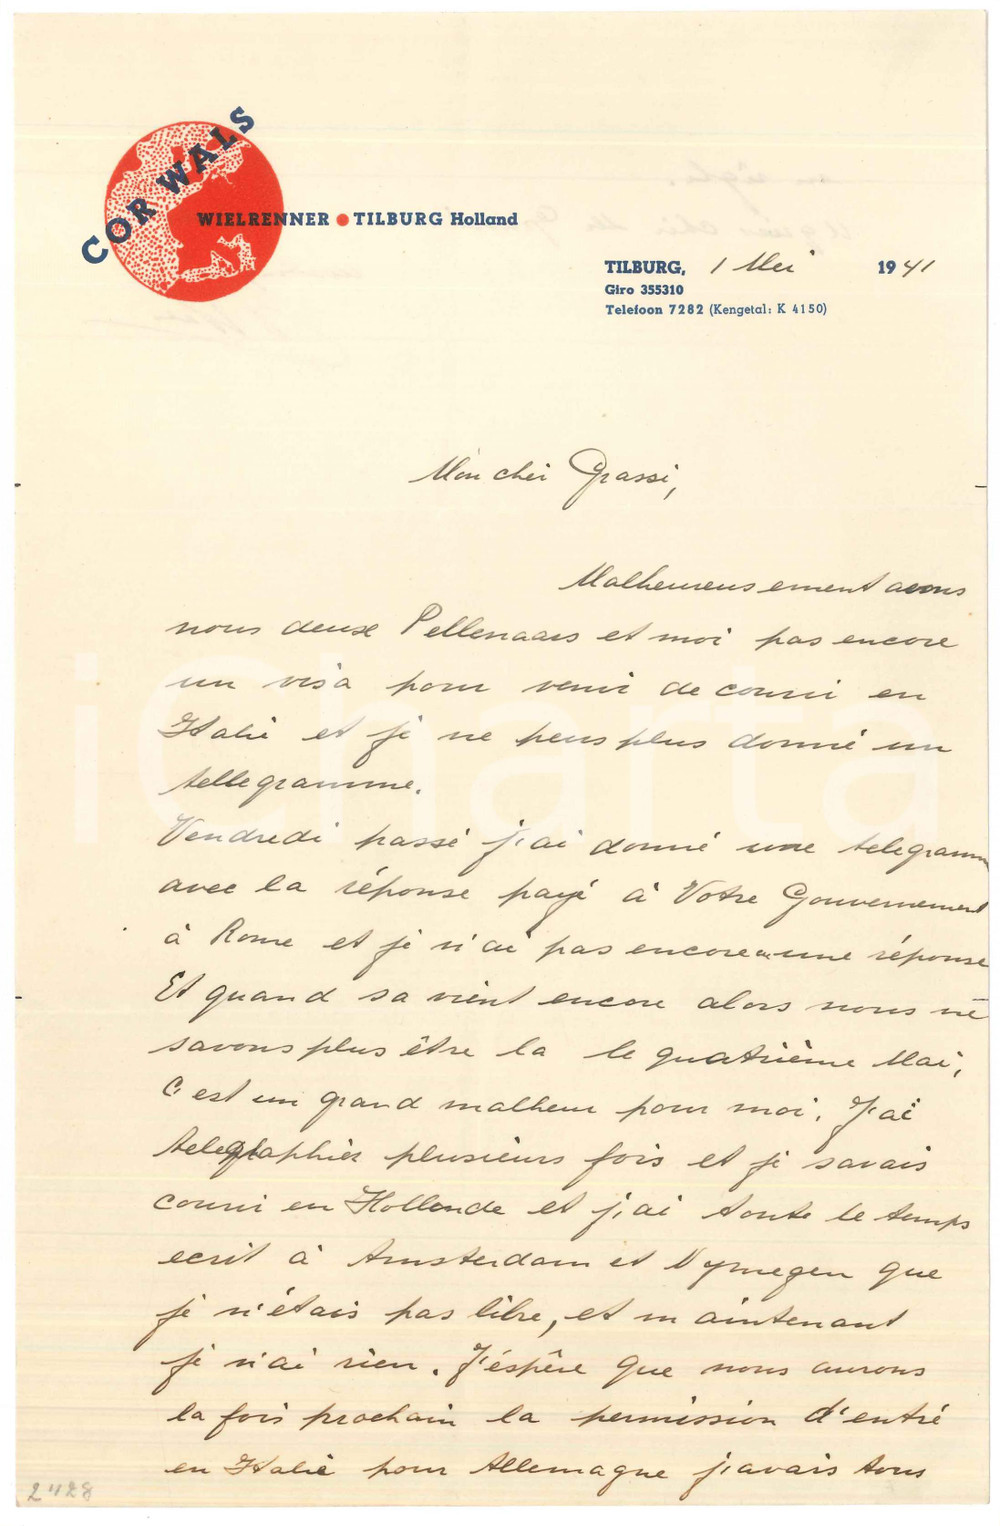 COR WALS
WIELRENNER ● TILBURG Holland
TILBURG, 1 Mei 1941
Giro 355310
Telefoon 7282 (Kengetal: K 4150)
Mon cher Grassi,
Malheureusement avons
nous deuse Pellenaars et moi pas encore
un visa pour venir de courir en
Italië et je ne peus plus donné un
tellegramme.
Vendredi passé j'ai donné une telegramm
avec la réponse payé à Votre Gouvernement
à Rome et je n'ai pas encore une réponse
Et quand sa vient encore alors nous ne
savons plus être la le quatrième Mai,
C'est un grand malheur pour moi. J'ai
telegraphier plusieurs fois et je savais
courir en Hollende et j'ai toute le temps
ecrit à Amsterdam et Nymegen que
je n'étais pas libre, et maintenant
je n'ai rien. J'éspêre que nous aurons
la fois prochain la permission d'entré
en Italië pour Allemagne j'avais tous
2428
iCharta